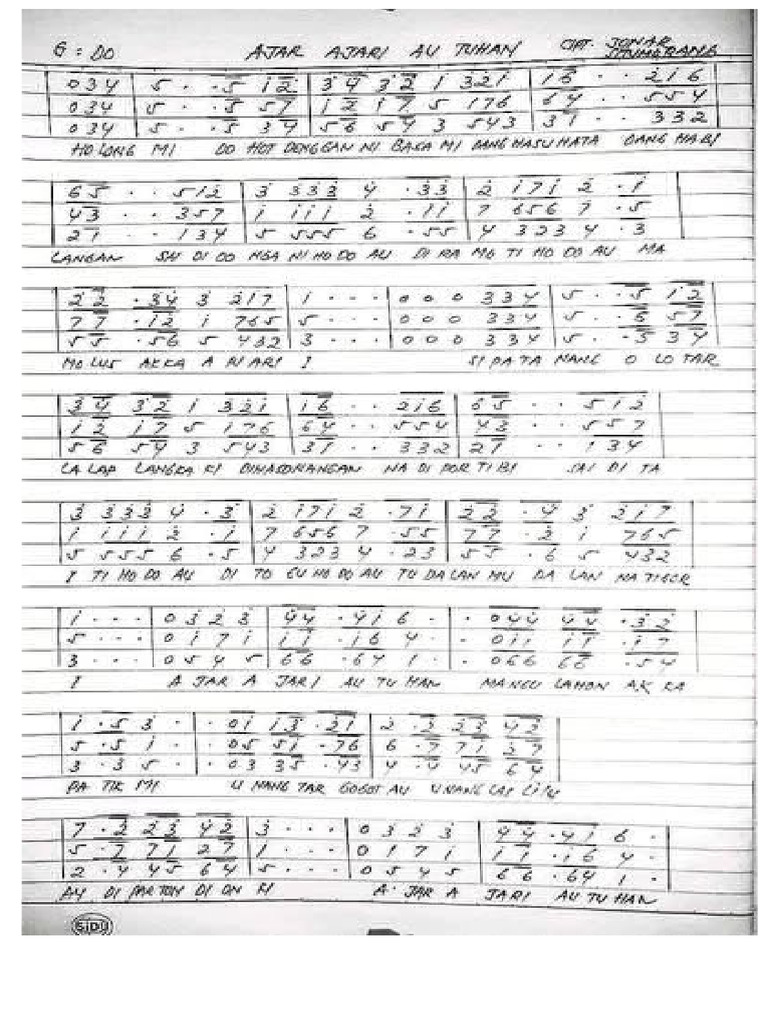 G = DO AJAR AJARI AU TUHAN CIPT. JONAR SITUMORANG
034 | 5 . .5 12 | 34 32 1 321 | 16 . . 216
034 | 5 . .5 57 | 12 17 5 176 | 64 . . 554
034 | 5 . .5 34 | 56 54 3 543 | 31 . . 332
HOLONG MI DO HOT DENGGAN NI BAGA MI DANG MASU HATA DANG HABI
65 . . 512 | 3 333 4 .33 | 2 171 2 .1
43 . . 357 | 1 111 2 .11 | 7 656 7 .5
21 . . 134 | 5 555 6 .55 | 4 323 4 .3
LANGAN SAI DI DO NGA NI HO DO AU DI RA MO TI HO DO AU MA
22 .34 3 217 | 1 . . . | 0 0 0 334 | 5 . .5 12
77 .12 1 765 | 5 . . . | 0 0 0 334 | 5 . .5 57
55 .56 5 432 | 3 . . . | 0 0 0 334 | 5 . .5 34
MO LUS AKKA A RI ARI I SI PA TA NANG O LO TAR
34 32 1 321 | 16 . . 216 | 65 . . 512
12 17 5 176 | 64 . . 554 | 43 . . 557
56 54 3 543 | 31 . . 332 | 21 . . 134
LA LAP LANGKA KI DIHASONANGAN NA DI POR TI BI SAI DI TA
3 333 4 .3 | 2 171 2 .71 | 22 .4 3 217
1 111 2 .1 | 7 656 7 .55 | 77 .2 1 765
5 555 6 .5 | 4 323 4 .23 | 55 .6 5 432
I TI HO DO AU DI TO GU HO DO AU TU DA LAN MU DA LAN NA TIGOR
1 . . . | 0 3 2 3 | 44 .416 . | . 044 44 .32
5 . . . | 0 1 7 1 | 11 .164 . | . 011 11 .17
3 . . . | 0 5 4 5 | 66 .641 . | . 066 66 .54
I A JAR A JARI AU TU HAN MANGU LAHON AK KA
1 .53 . | . 01 13 .21 | 2 .2 23 42
5 .51 . | . 05 51 .76 | 6 .7 71 27
3 .35 . | . 03 35 .43 | 4 .4 45 64
PA TIK MI U NANG TAR GOGOT AU UNANG LAP
7 .2 23 42 | 3 . . . | 0 3 2 3 | 44 .41 6 .
5 .7 71 27 | 1 . . . | 0 1 7 1 | 11 .16 4 .
2 .4 45 64 | 5 . . . | 0 5 4 5 | 66 .64 1 .
AU DI DI ON A JAR A JARI AU TU HAN
SiDU